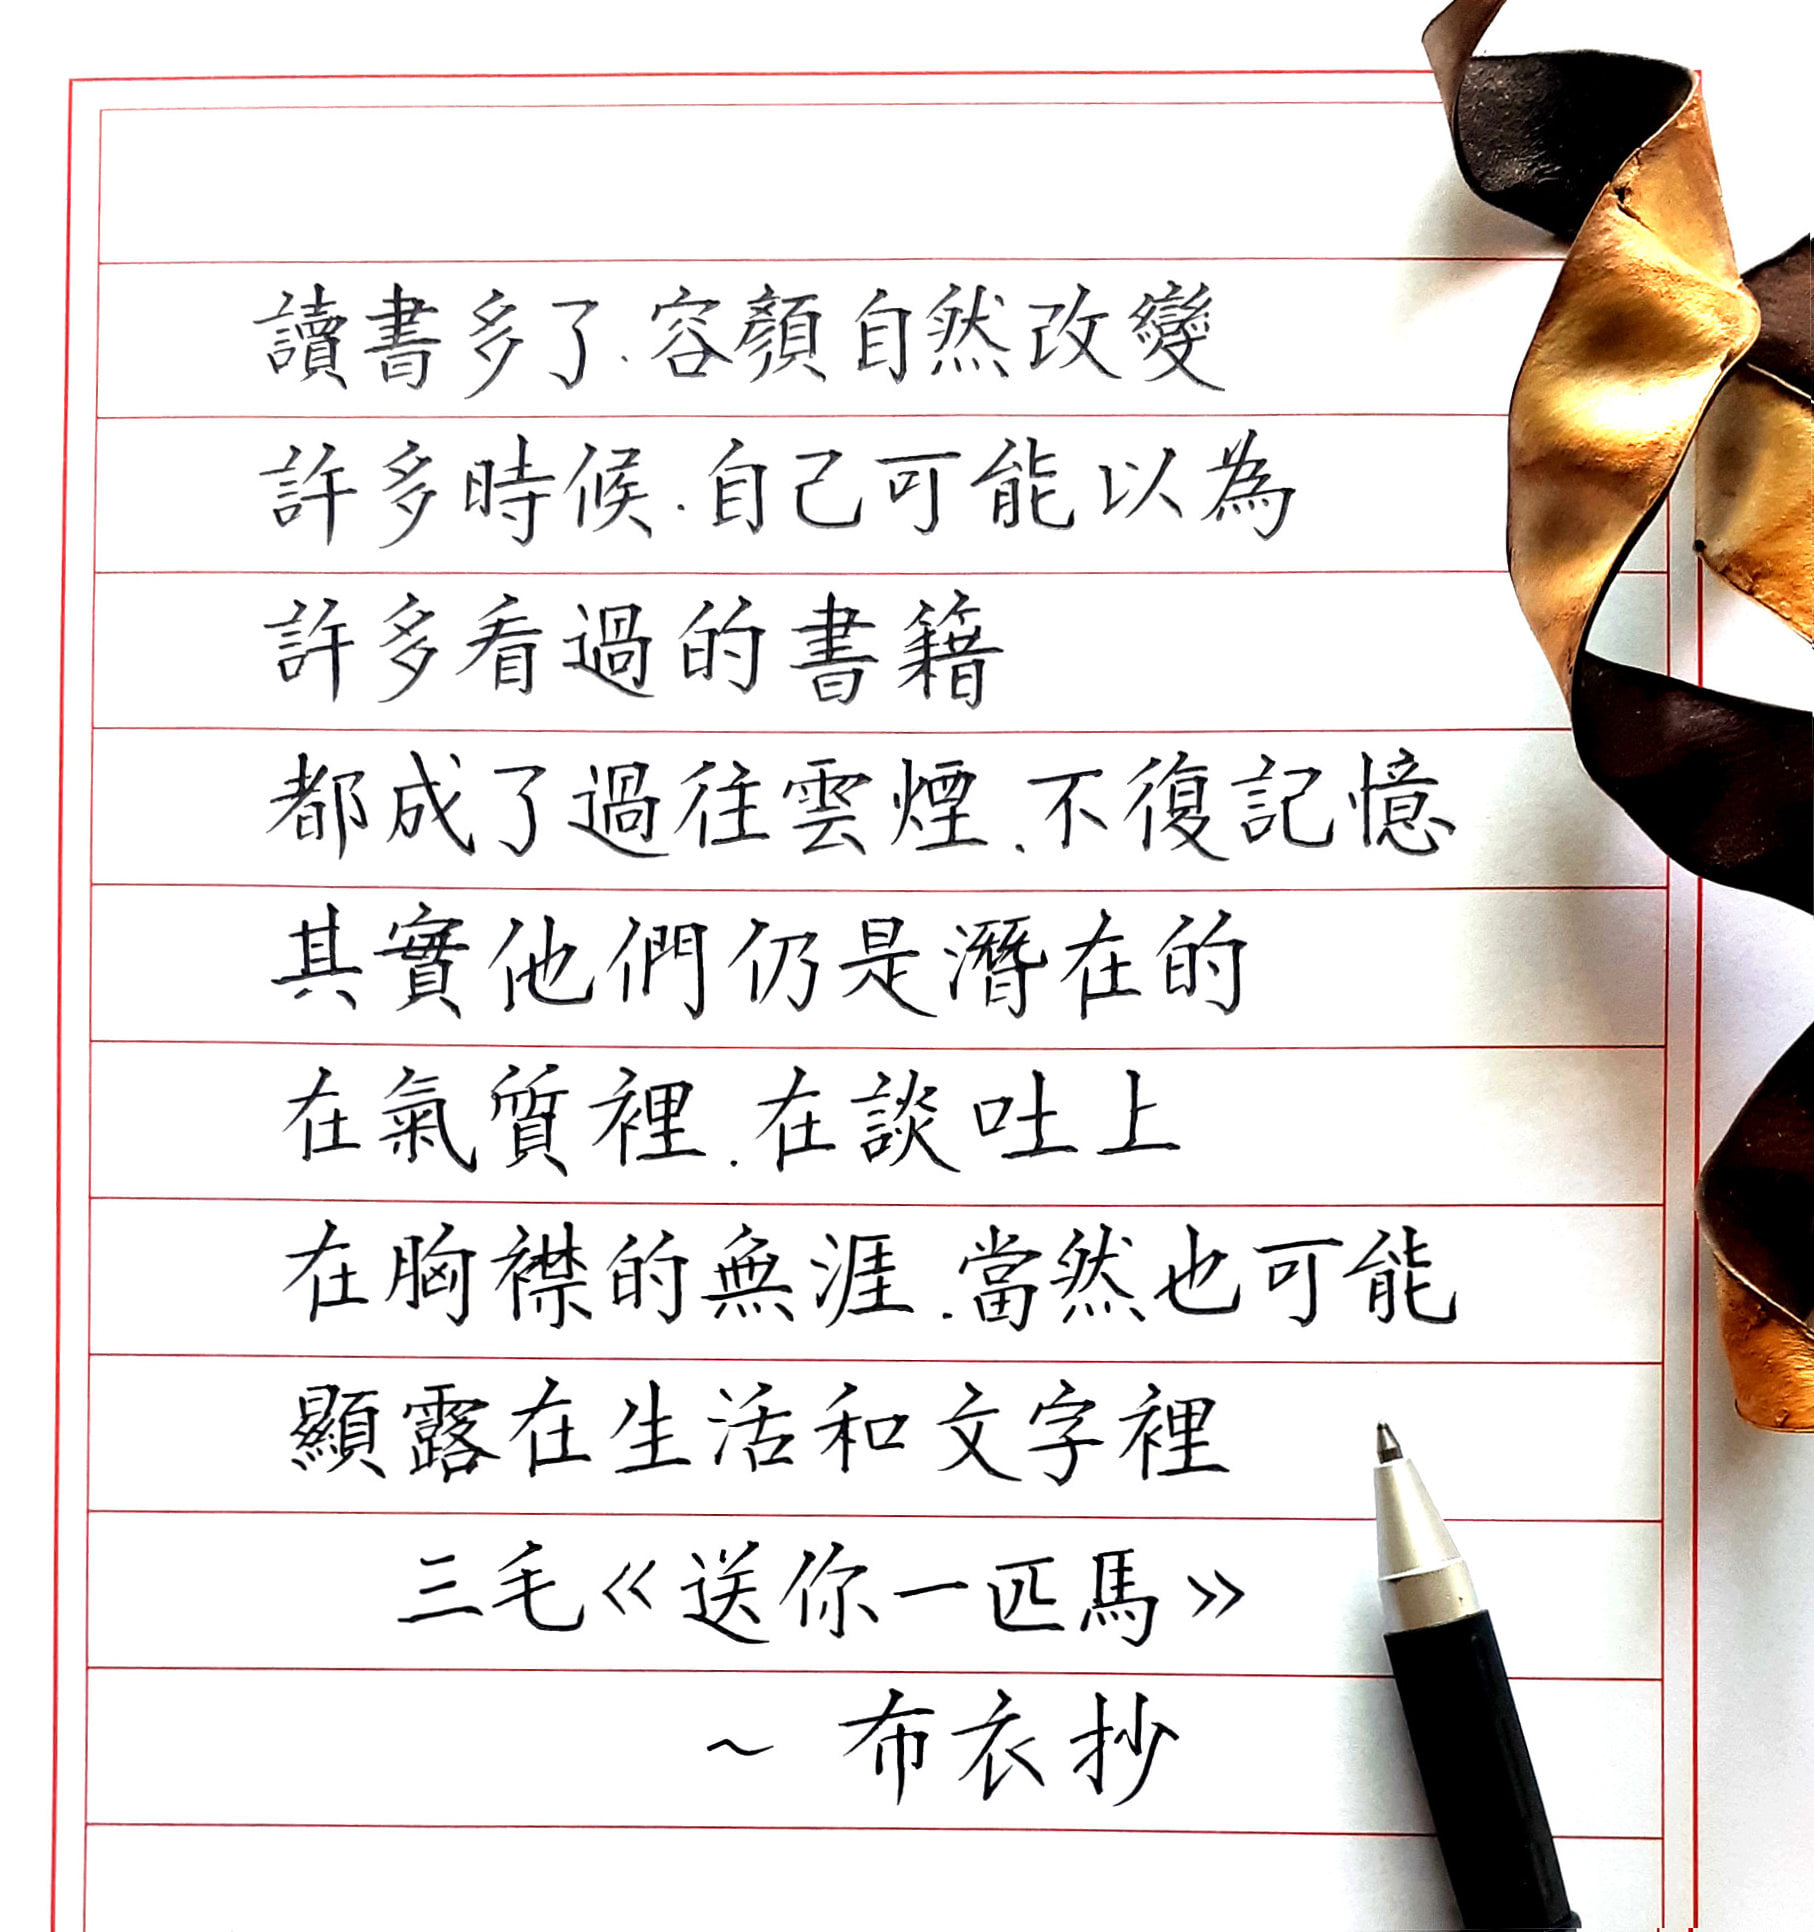 讀書多了.容顏自然改變
許多時候.自己可能以為
許多看過的書籍
都成了過往雲煙.不復記憶
其實他們仍是潛在的
在氣質裡.在談吐上
在胸襟的無涯.當然也可能
顯露在生活和文字裡
三毛《送你一匹馬》
~ 布衣抄